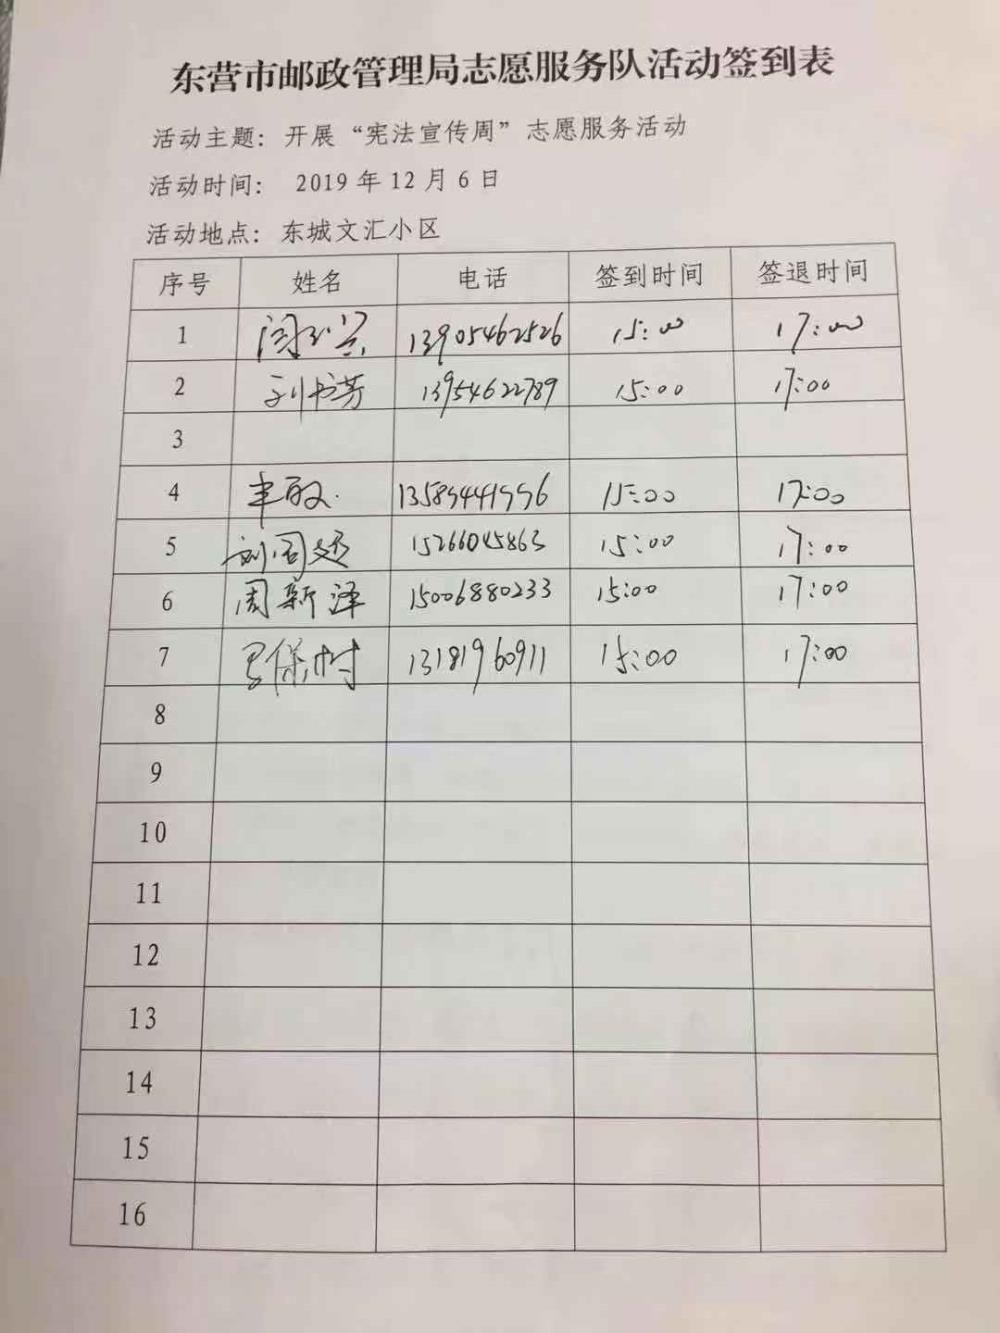 东营市邮政管理局志愿服务队活动签到表
活动主题：开展“宪法宣传周”志愿服务活动
活动时间： 2019 年 12 月 6 日
活动地点：东城文汇小区
序号 姓名 电话 签到时间 签退时间
1 13905462526 15:00 17:00
2 刘书芳 13954622789 15:00 17:00
3
4 15:00 17:00
5 15266045863 15:00 17:00
6 周新泽 15006880233 15:00 17:00
7 13181960911 15:00 17:00
8
9
10
11
12
13
14
15
16